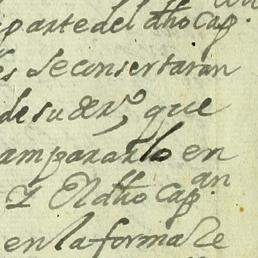 parte del dho Cap.
es se consertaran
de su serº, que
ampararlo en
Y El dho Cap.an
en la forma se